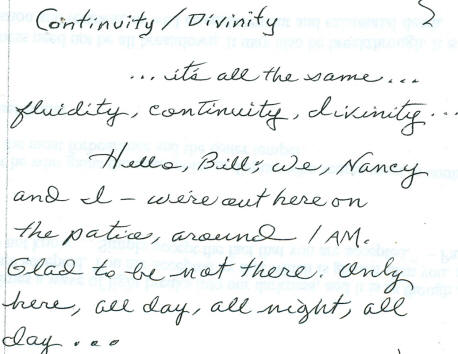 Continuity / Divinity 2
...it's all the same...
fluidity, continuity, divinity...
Hello, Bill; we, Nancy
and I – we're out here on
the patio, around 1 AM.
Glad to be not there. Only
here, all day, all night, all
day...